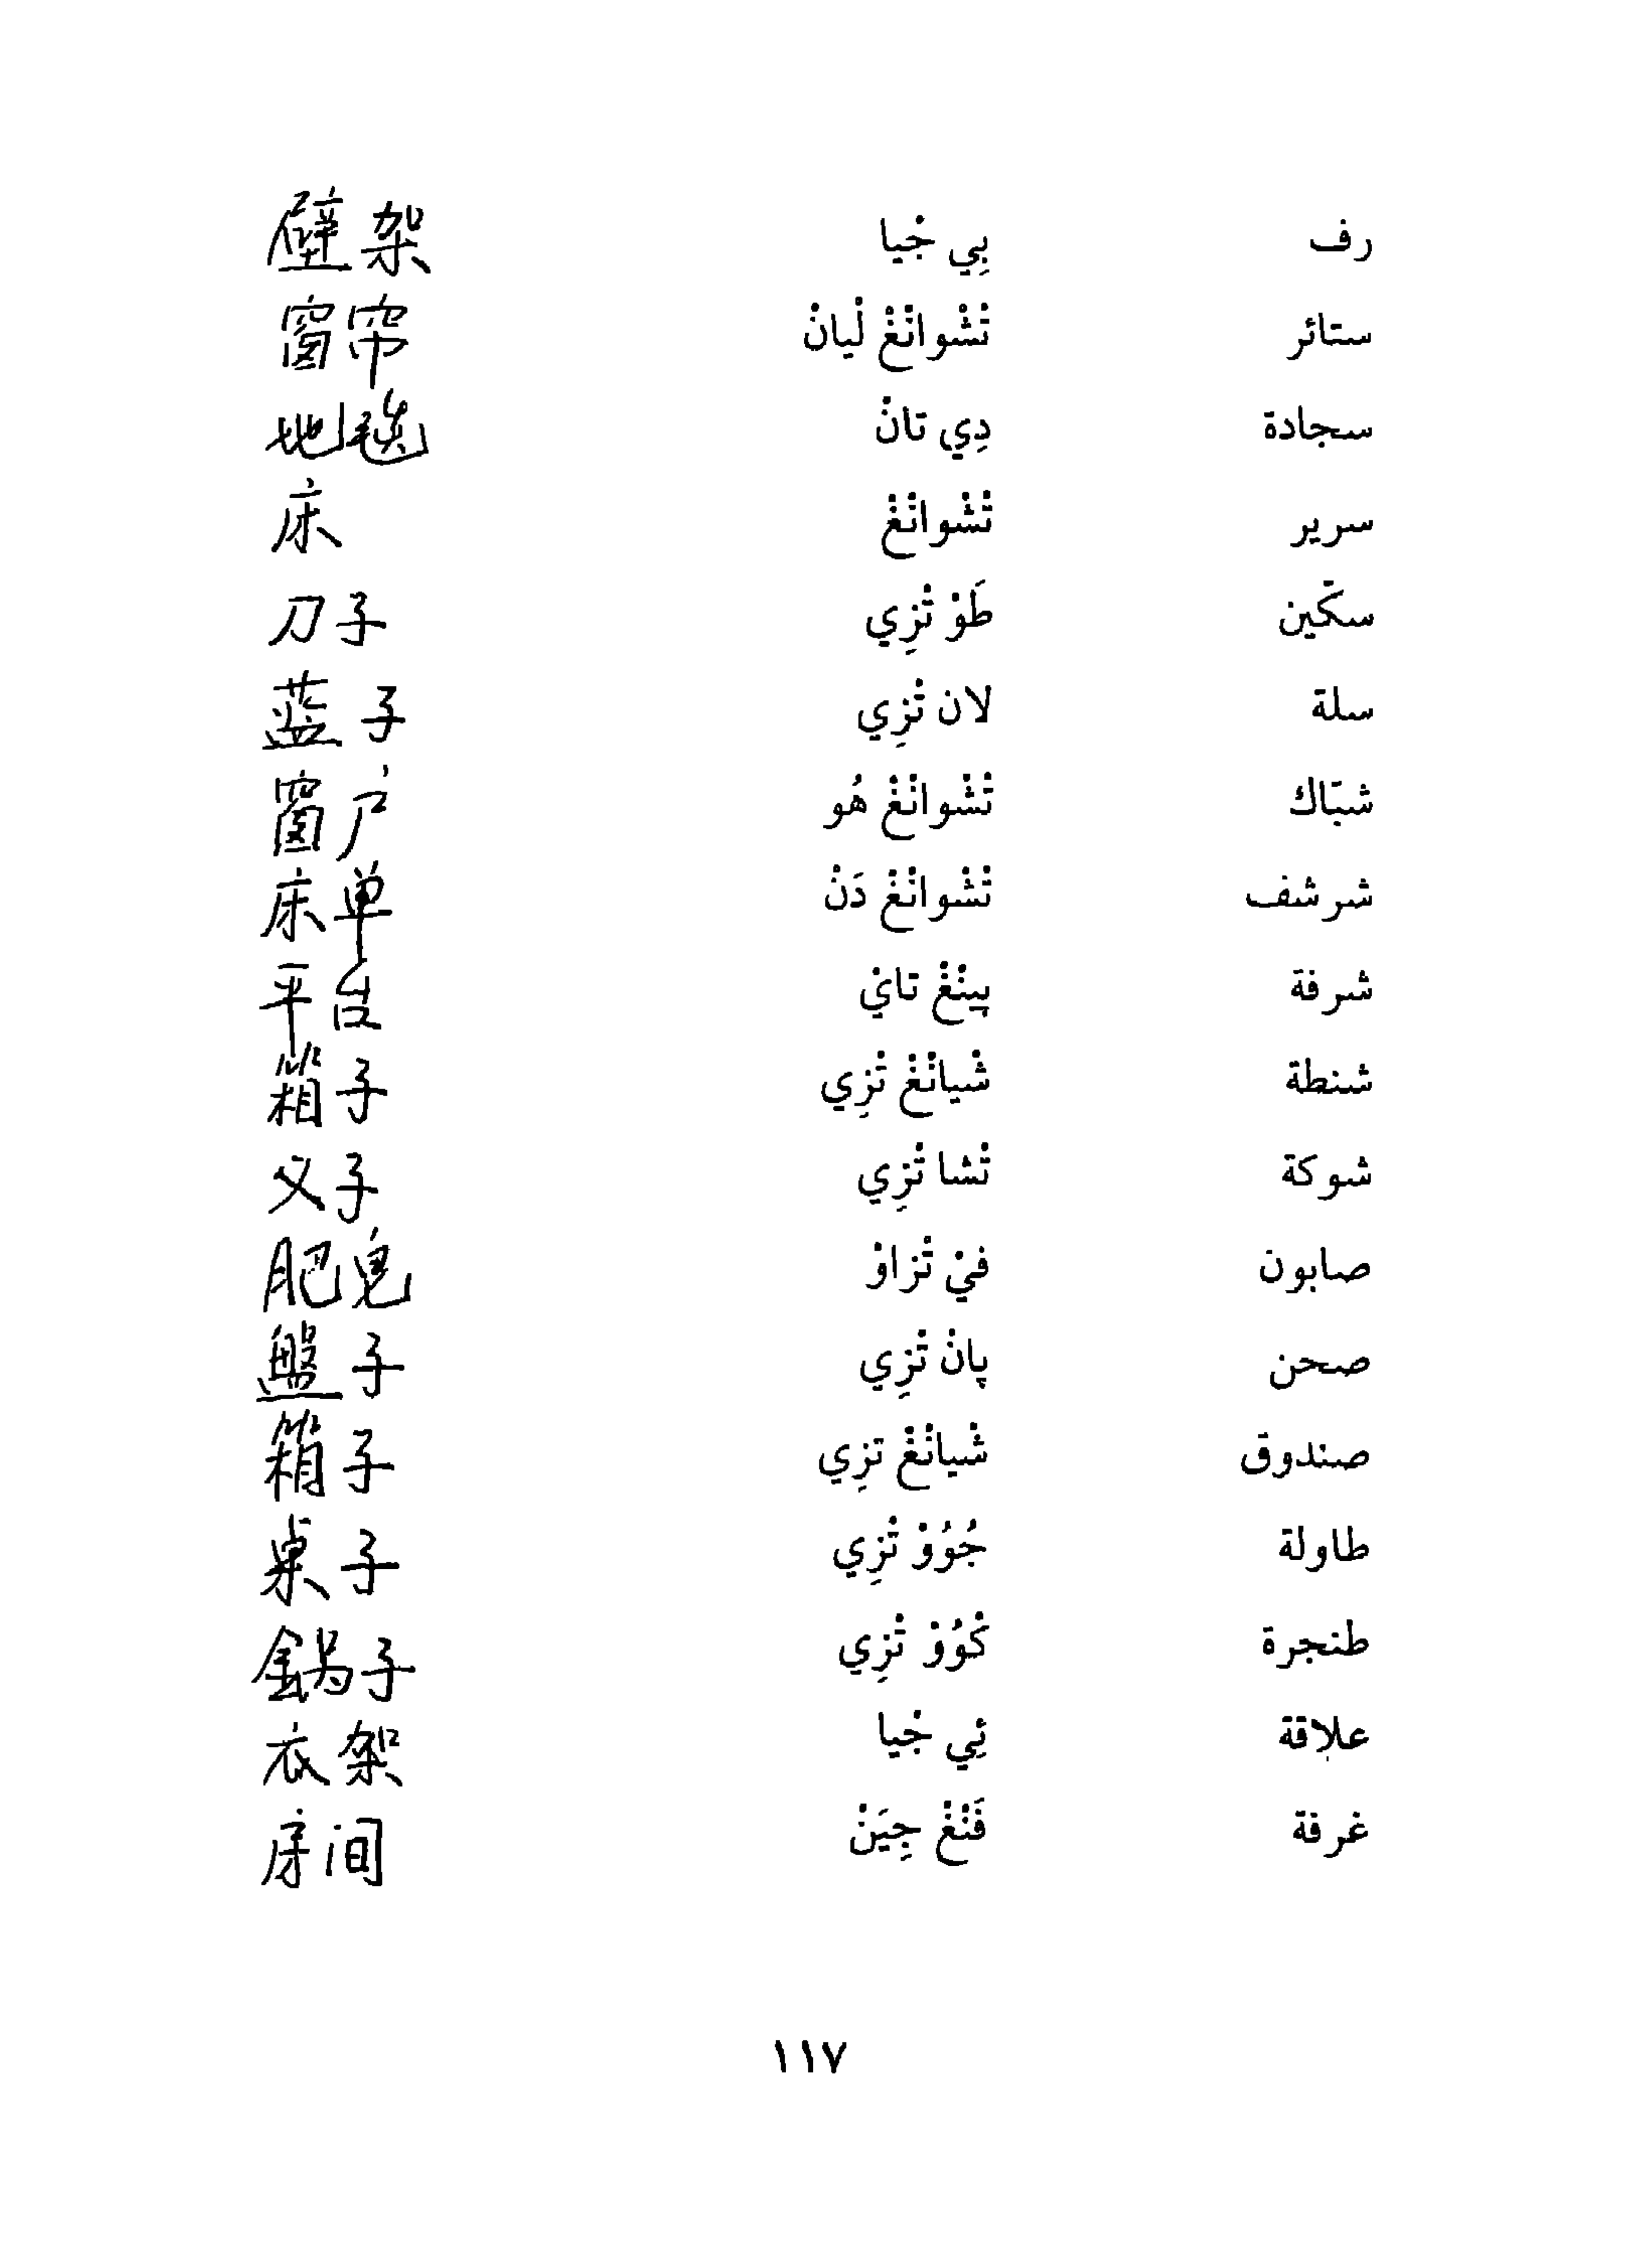 رف بِي جْيا 壁架
ستائر تْشْوانْغْ لْيانْ 窗帘
سجادة دِي تانْ 地毯
سرير تْشْوانْغْ 床
سكّين طَوْ تْزِي 刀子
سلة لان تْزِي 蓝子
شبّاك تْشْوانْغْ هُو 窗户
شرشف تْشْوانْغْ دَنْ 床单
شرفة پينْغْ تايْ 平台
شنطة شْيانْغْ تْزِي 箱子
شوكة تْشا تْزِي 叉子
صابون فيْ تْزاوْ 肥皂
صحن پانْ تْزِي 盤子
صندوق شْيانْغْ تزِي 箱子
طاولة جُوُوْ تْزِي 桌子
طنجرة كْوُوْ تْزِي 鍋子
علاقة ئِي جْيا 衣架
غرفة فَنْغْ جِيَنْ 房间
١١٧